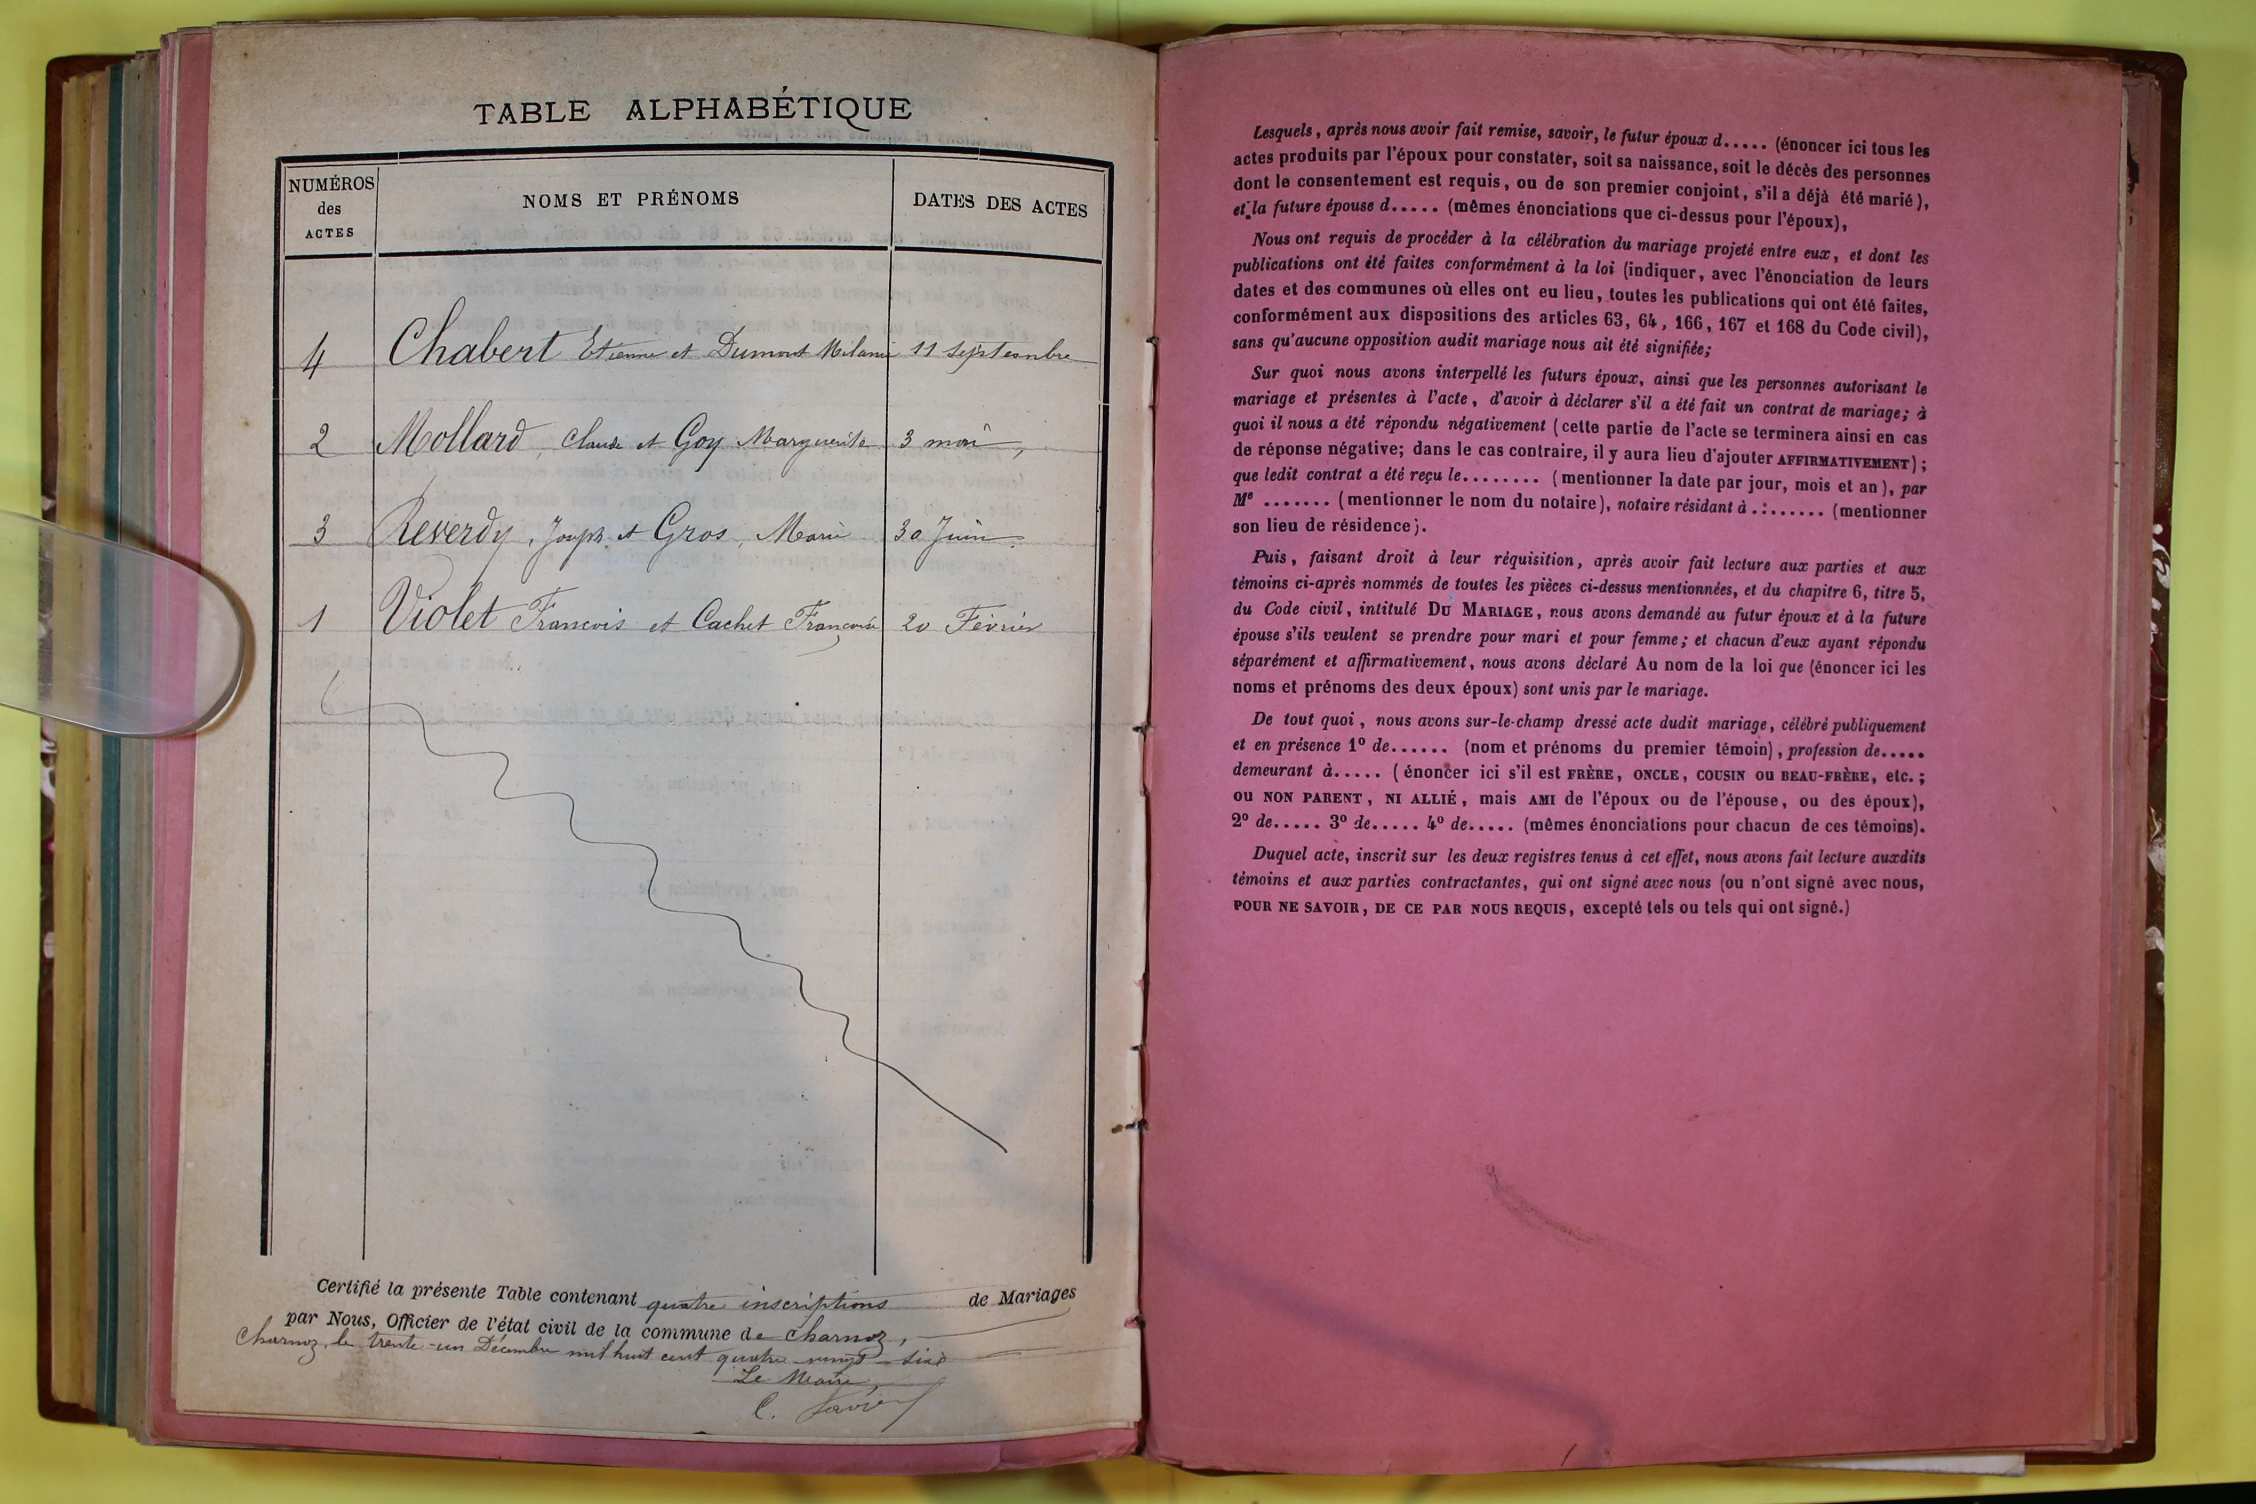 TABLE ALPHABÉTIQUE
NUMÉROS des ACTES NOMS ET PRÉNOMS DATES DES ACTES
4 Chabert Etienne et Dumont Mélanie 11 Septembre
2 Mollard, Claude et Goy Marguerite 3 mai,
3 Reverdy, Joseph et Gros, Marie 30 Juin.
1 Violet François et Cachet Françoise 20 Février
Certifié la présente Table contenant quatre inscriptions de Mariages
par Nous, Officier de l'état civil de la commune de Charnoz,
Charnoz, le trente-un Décembre mil huit cent quatre-vingt-six
Le Maire,
C.
Lesquels, après nous avoir fait remise, savoir, le futur époux d..... (énoncer ici tous les
actes produits par l'époux pour constater, soit sa naissance, soit le décès des personnes
dont le consentement est requis, ou de son premier conjoint, s'il a déjà été marié),
et la future épouse d..... (mêmes énonciations que ci-dessus pour l'époux),
Nous ont requis de procéder à la célébration du mariage projeté entre eux, et dont les
publications ont été faites conformément à la loi (indiquer, avec l'énonciation de leurs
dates et des communes où elles ont eu lieu, toutes les publications qui ont été faites,
conformément aux dispositions des articles 63, 64, 166, 167 et 168 du Code civil),
sans qu'aucune opposition audit mariage nous ait été signifiée;
Sur quoi nous avons interpellé les futurs époux, ainsi que les personnes autorisant le
mariage et présentes à l'acte, d'avoir à déclarer s'il a été fait un contrat de mariage; à
quoi il nous a été répondu négativement (cette partie de l'acte se terminera ainsi en cas
de réponse négative; dans le cas contraire, il y aura lieu d'ajouter AFFIRMATIVEMENT);
que ledit contrat a été reçu le........ (mentionner la date par jour, mois et an), par
Me ....... (mentionner le nom du notaire), notaire résidant à .:...... (mentionner
son lieu de résidence).
Puis, faisant droit à leur réquisition, après avoir fait lecture aux parties et aux
témoins ci-après nommés de toutes les pièces ci-dessus mentionnées, et du chapitre 6, titre 5,
du Code civil, intitulé DU MARIAGE, nous avons demandé au futur époux et à la future
épouse s'ils veulent se prendre pour mari et pour femme; et chacun d'eux ayant répondu
séparément et affirmativement, nous avons déclaré Au nom de la loi que (énoncer ici les
noms et prénoms des deux époux) sont unis par le mariage.
De tout quoi, nous avons sur-le-champ dressé acte dudit mariage, célébré publiquement
et en présence 1º de...... (nom et prénoms du premier témoin), profession de.....
demeurant à..... (énoncer ici s'il est FRÈRE, ONCLE, COUSIN OU BEAU-FRÈRE, etc.;
ou NON PARENT, NI ALLIÉ, mais AMI de l'époux ou de l'épouse, ou des époux),
2º de..... 3º de..... 4º de..... (mêmes énonciations pour chacun de ces témoins).
Duquel acte, inscrit sur les deux registres tenus à cet effet, nous avons fait lecture auxdits
témoins et aux parties contractantes, qui ont signé avec nous (ou n'ont signé avec nous,
POUR NE SAVOIR, DE CE PAR NOUS REQUIS, excepté tels ou tels qui ont signé.)